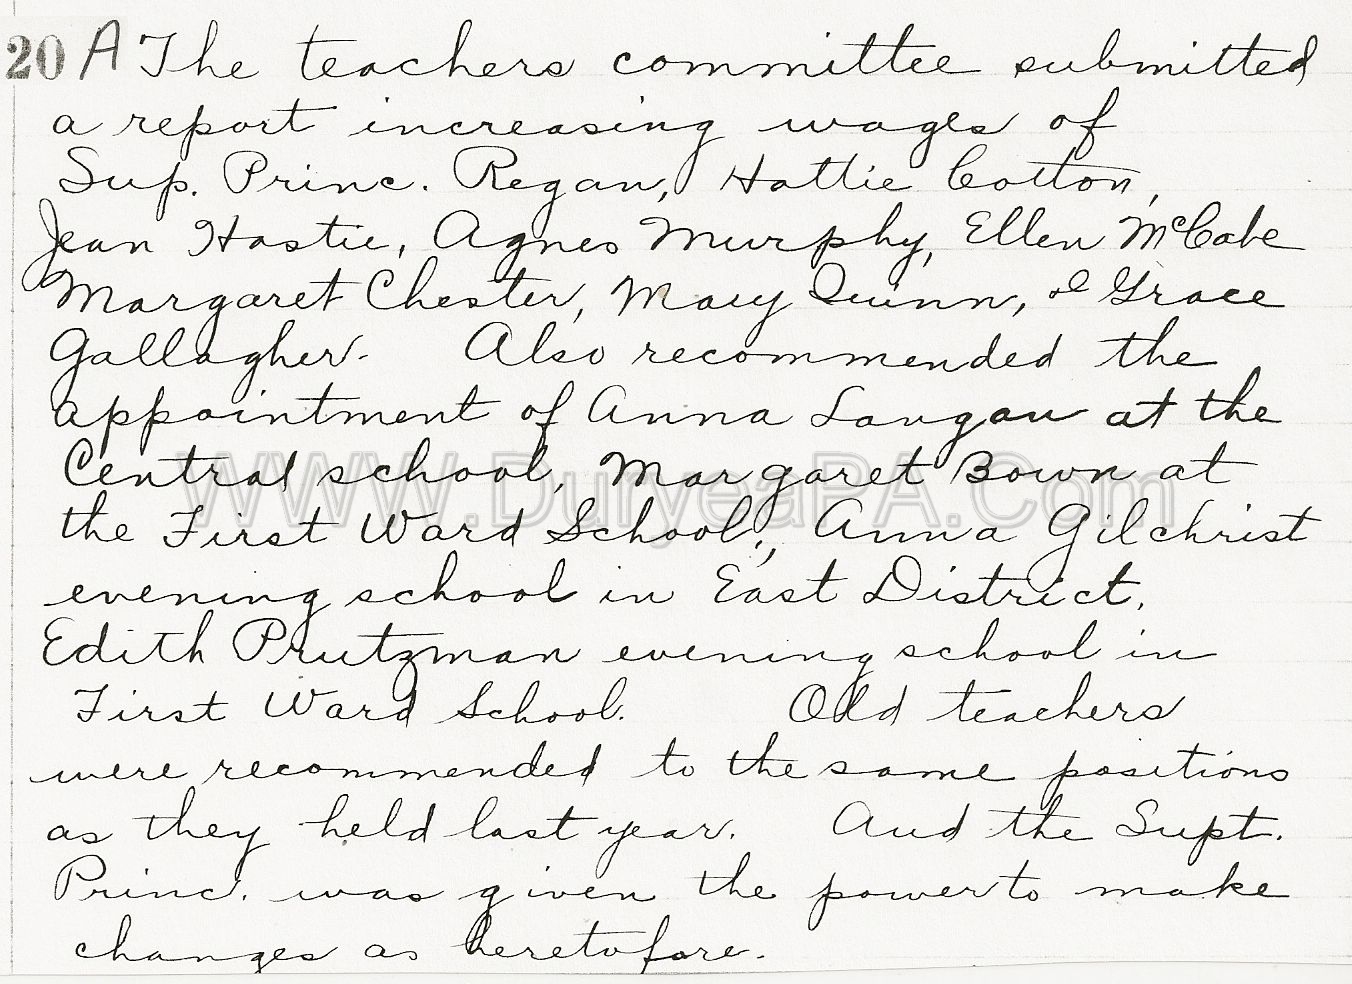 20 A The teachers committee submitted
a report increasing wages of
Sup. Princ. Regan, Hattie Cotton,
Jean Hastie, Agnes Murphy, Ellen McCabe
Margaret Chester, Mary Quinn, & Grace
Gallagher. Also recommended the
appointment of Anna Langan at the
Central school, Margaret Bown at
the First Ward School, Anna Gilchrist
evening school in East District,
Edith Prutzman evening school in
First Ward School. Old teachers
were recommended to the same positions
as they held last year. And the Supt.
Princ. was given the power to make
changes as heretofore.
WWW.DuryeaPA.Com